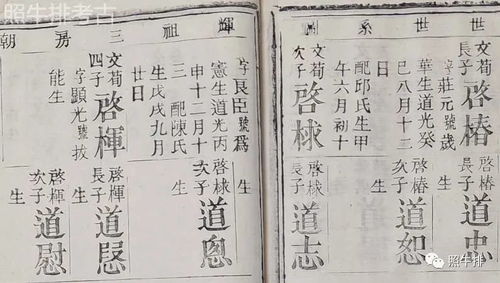 照牛排考古
世世系嗣
文荀長子啓椿
字莊元號歲
華生道光癸
巳八月十三
日
配邱氏生甲
午六月初十
文荀次子啓梂
啓椿長子道忠
生
啓椿次子道恕
生
啓梂長子道志
輝祖三房朝
字艮臣號為
憲生道光丙
申十二月十
三 配陳氏
生戊戌九月
廿日
文荀四子啓楎
字顯光號拔
能生
啓梂次子道恩
生
啓楎長子道
生
啓楎次子道慰
照牛排